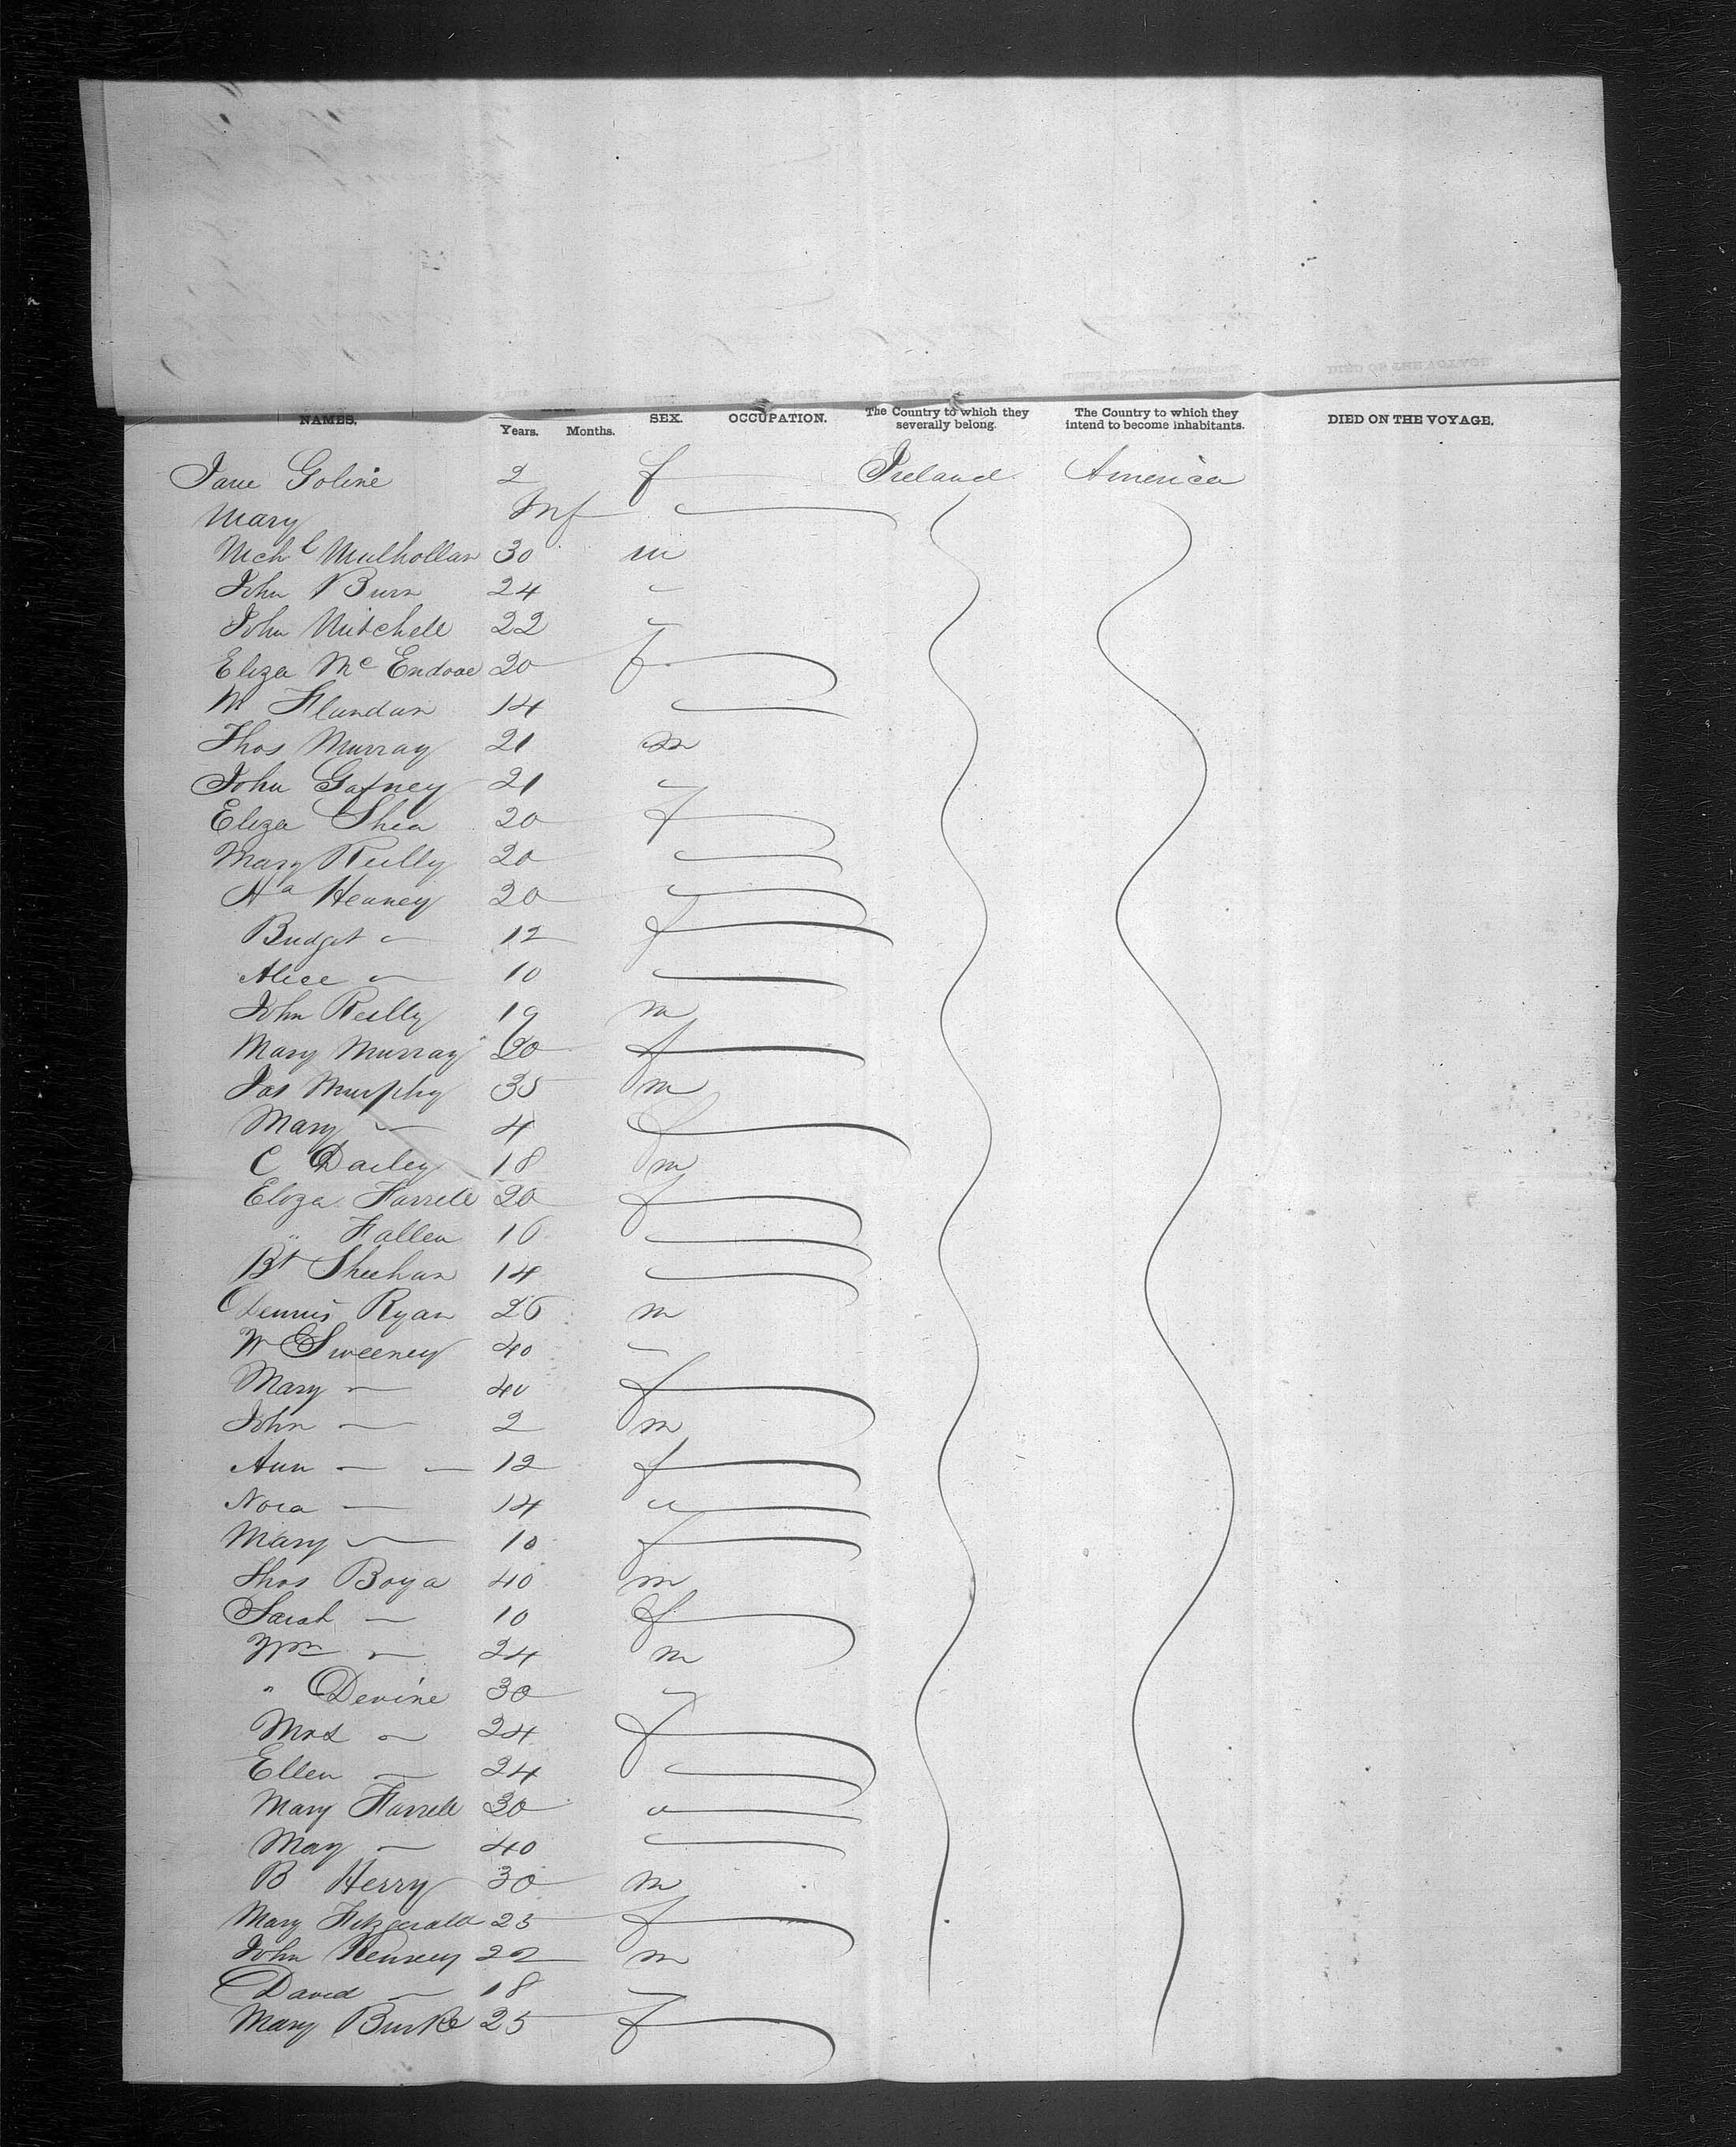 NAMES. Years. Months. SEX. OCCUPATION. The Country to which they severally belong. The Country to which they intend to become inhabitants. DIED ON THE VOYAGE.
Jane Goline 2 f Ireland America
Mary Inf
Mich l Mulhollan 30 m
John Burn 24
John Mitchell 22
Eliza Mc 20 f
M Flandan 14
Thos Murray 21 m
John Gafney 21
Eliza Shea 20 f
Mary Reilly 20
Heaney 20
Bridget 12 f
Alice 10
John Reilly 19 m
Mary Murray 20 f
Jas Murphy 35 m
Mary 4 f
C Dailey 18 m
Eliza Farrell 20 f
" Fallen 16
Bt Sheehan 14
Dennis Ryan 26 m
W Sweeney 40
Mary 40 f
John 2 m
Ann 12 f
Nora 14 "
Mary 10 f
Thos Boya 40 m
Sarah 10 f
Wm 24 m
" Devine 30
Mrs 24 f
Ellen 24
Mary Farrell 30
May 40
B Herry 30 m
Mary Fitzgerald 25 f
John 22 m
David 18
Mary Burke 25 f